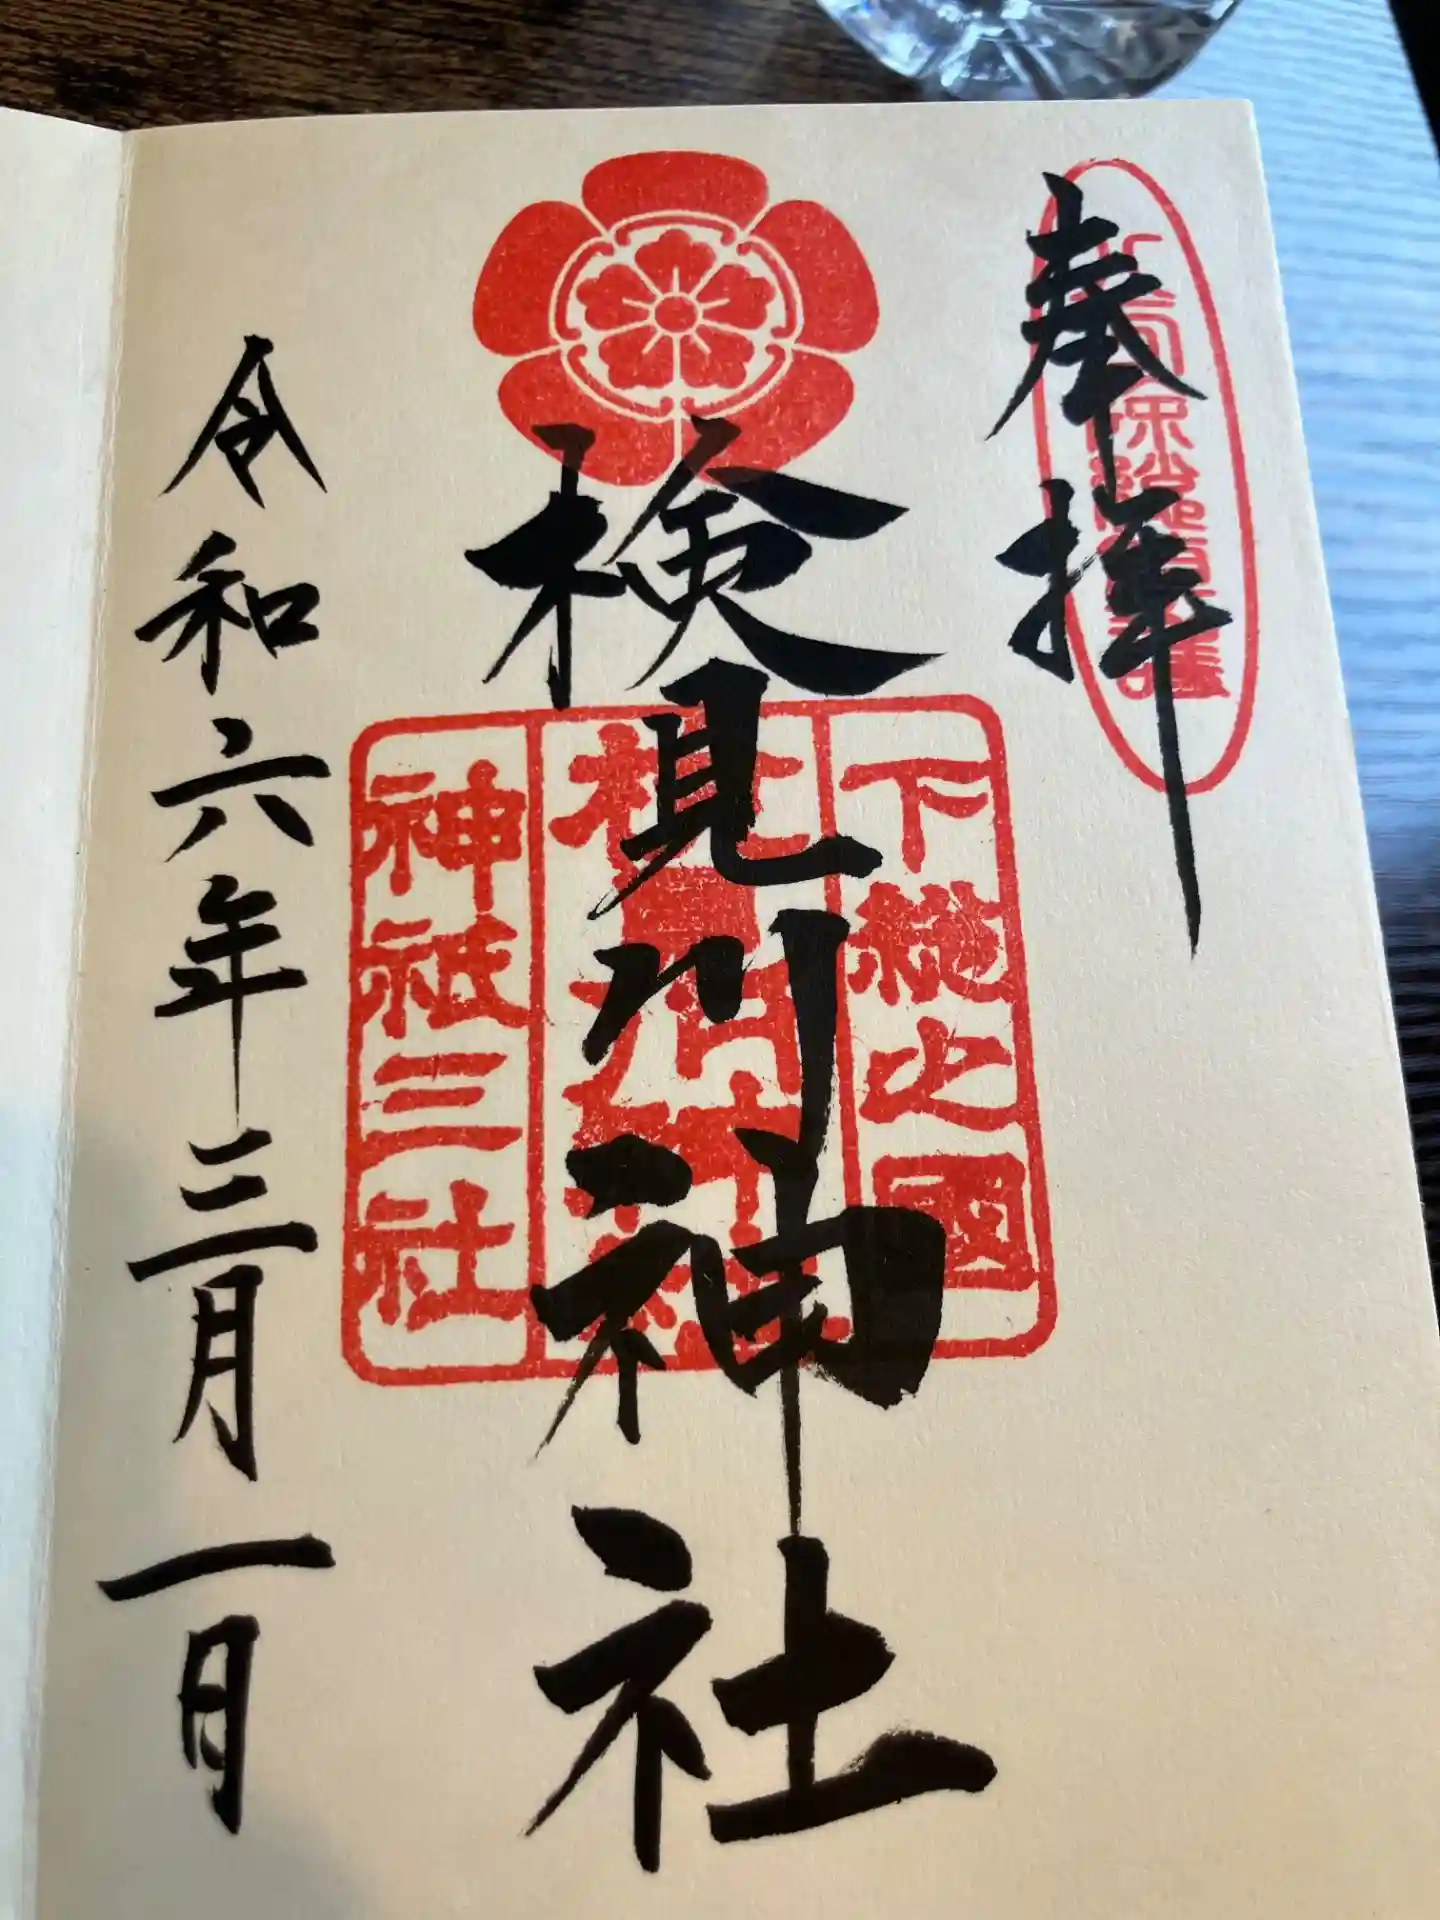 奉拝
下総之國
検見川神社
神祇三社
令和六年三月一日